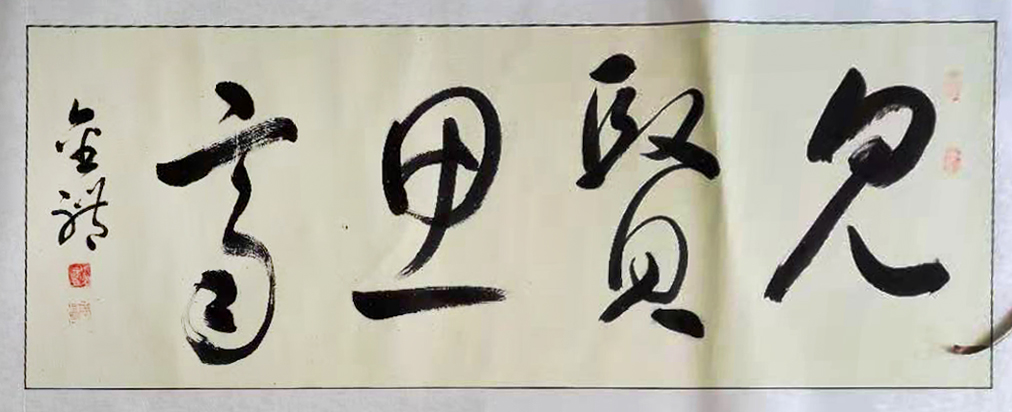 見賢思齊
金